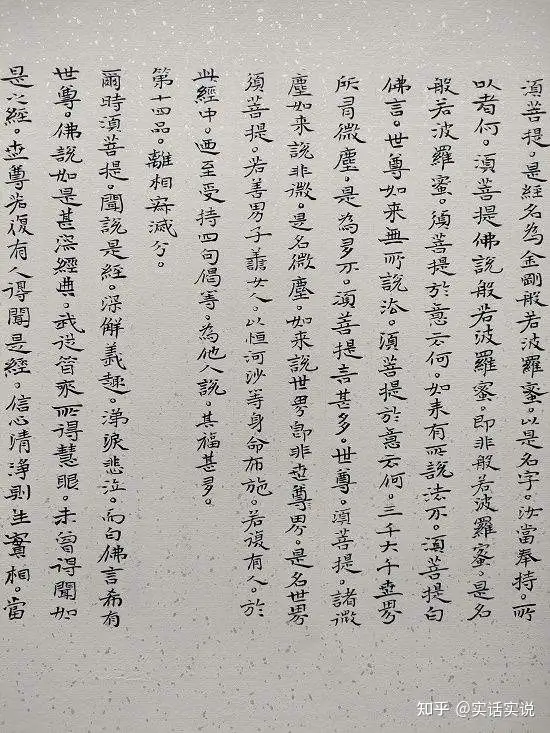 須菩提。是經名為金剛般若波羅蜜。以是名字。汝當奉持。所
以者何。須菩提佛說般若波羅蜜。即非般若波羅蜜。是名
般若波羅蜜。須菩提於意云何。如来有所說法不。須菩提白
佛言。世尊如来無所說法。須菩提於意云何。三千大千世界
所有微塵。是為多不。須菩提言甚多。世尊。須菩提。諸微
塵如来說非微。是名微塵。如来說世界即非世尊界。是名世界
須菩提。若善男子善女人。以恒河沙等身命布施。若復有人。於
此經中。乃至受持四句偈等。為他人說。其福甚多。
第十四品。離相寂滅分。
爾時須菩提。聞說是經。深解義趣。涕淚悲泣。而白佛言希有
世尊。佛說如是甚深經典。我從昔來所得慧眼。未曾得聞如
是之經。世尊若復有人得聞是經。信心清淨則生實相。當
知乎 @实话实说